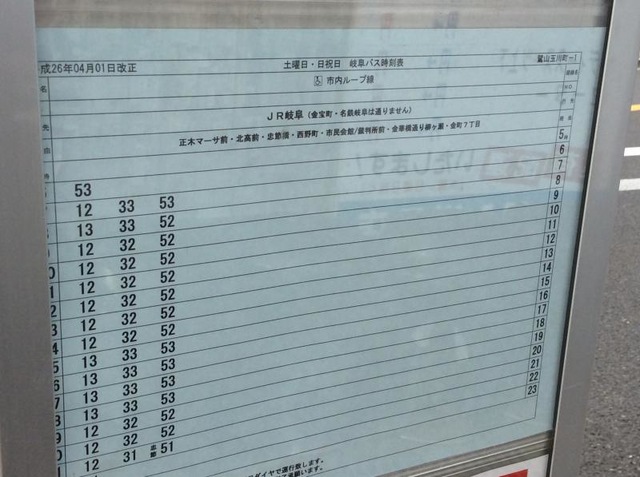 成26年04月01日改正 土曜日・日祝日 岐阜バス時刻表 鷺山玉川町-1
市内ループ線
JR岐阜 (金宝町・名鉄岐阜は通りません)
正木マーサ前・北高前・忠節橋・西野町・市民会館/裁判所前・金華橋通り柳ヶ瀬・金町7丁目
5時
6
7
53 8
12 33 53 9
13 33 53 10
12 33 52 11
12 32 52 12
12 32 52 13
12 32 52 14
12 32 52 15
12 32 52 16
13 33 53 17
13 33 53 18
13 33 53 19
13 33 53 20
12 32 52 21
12 32 52 22
12 31 忠節 51 23
ダイヤで運行致します。